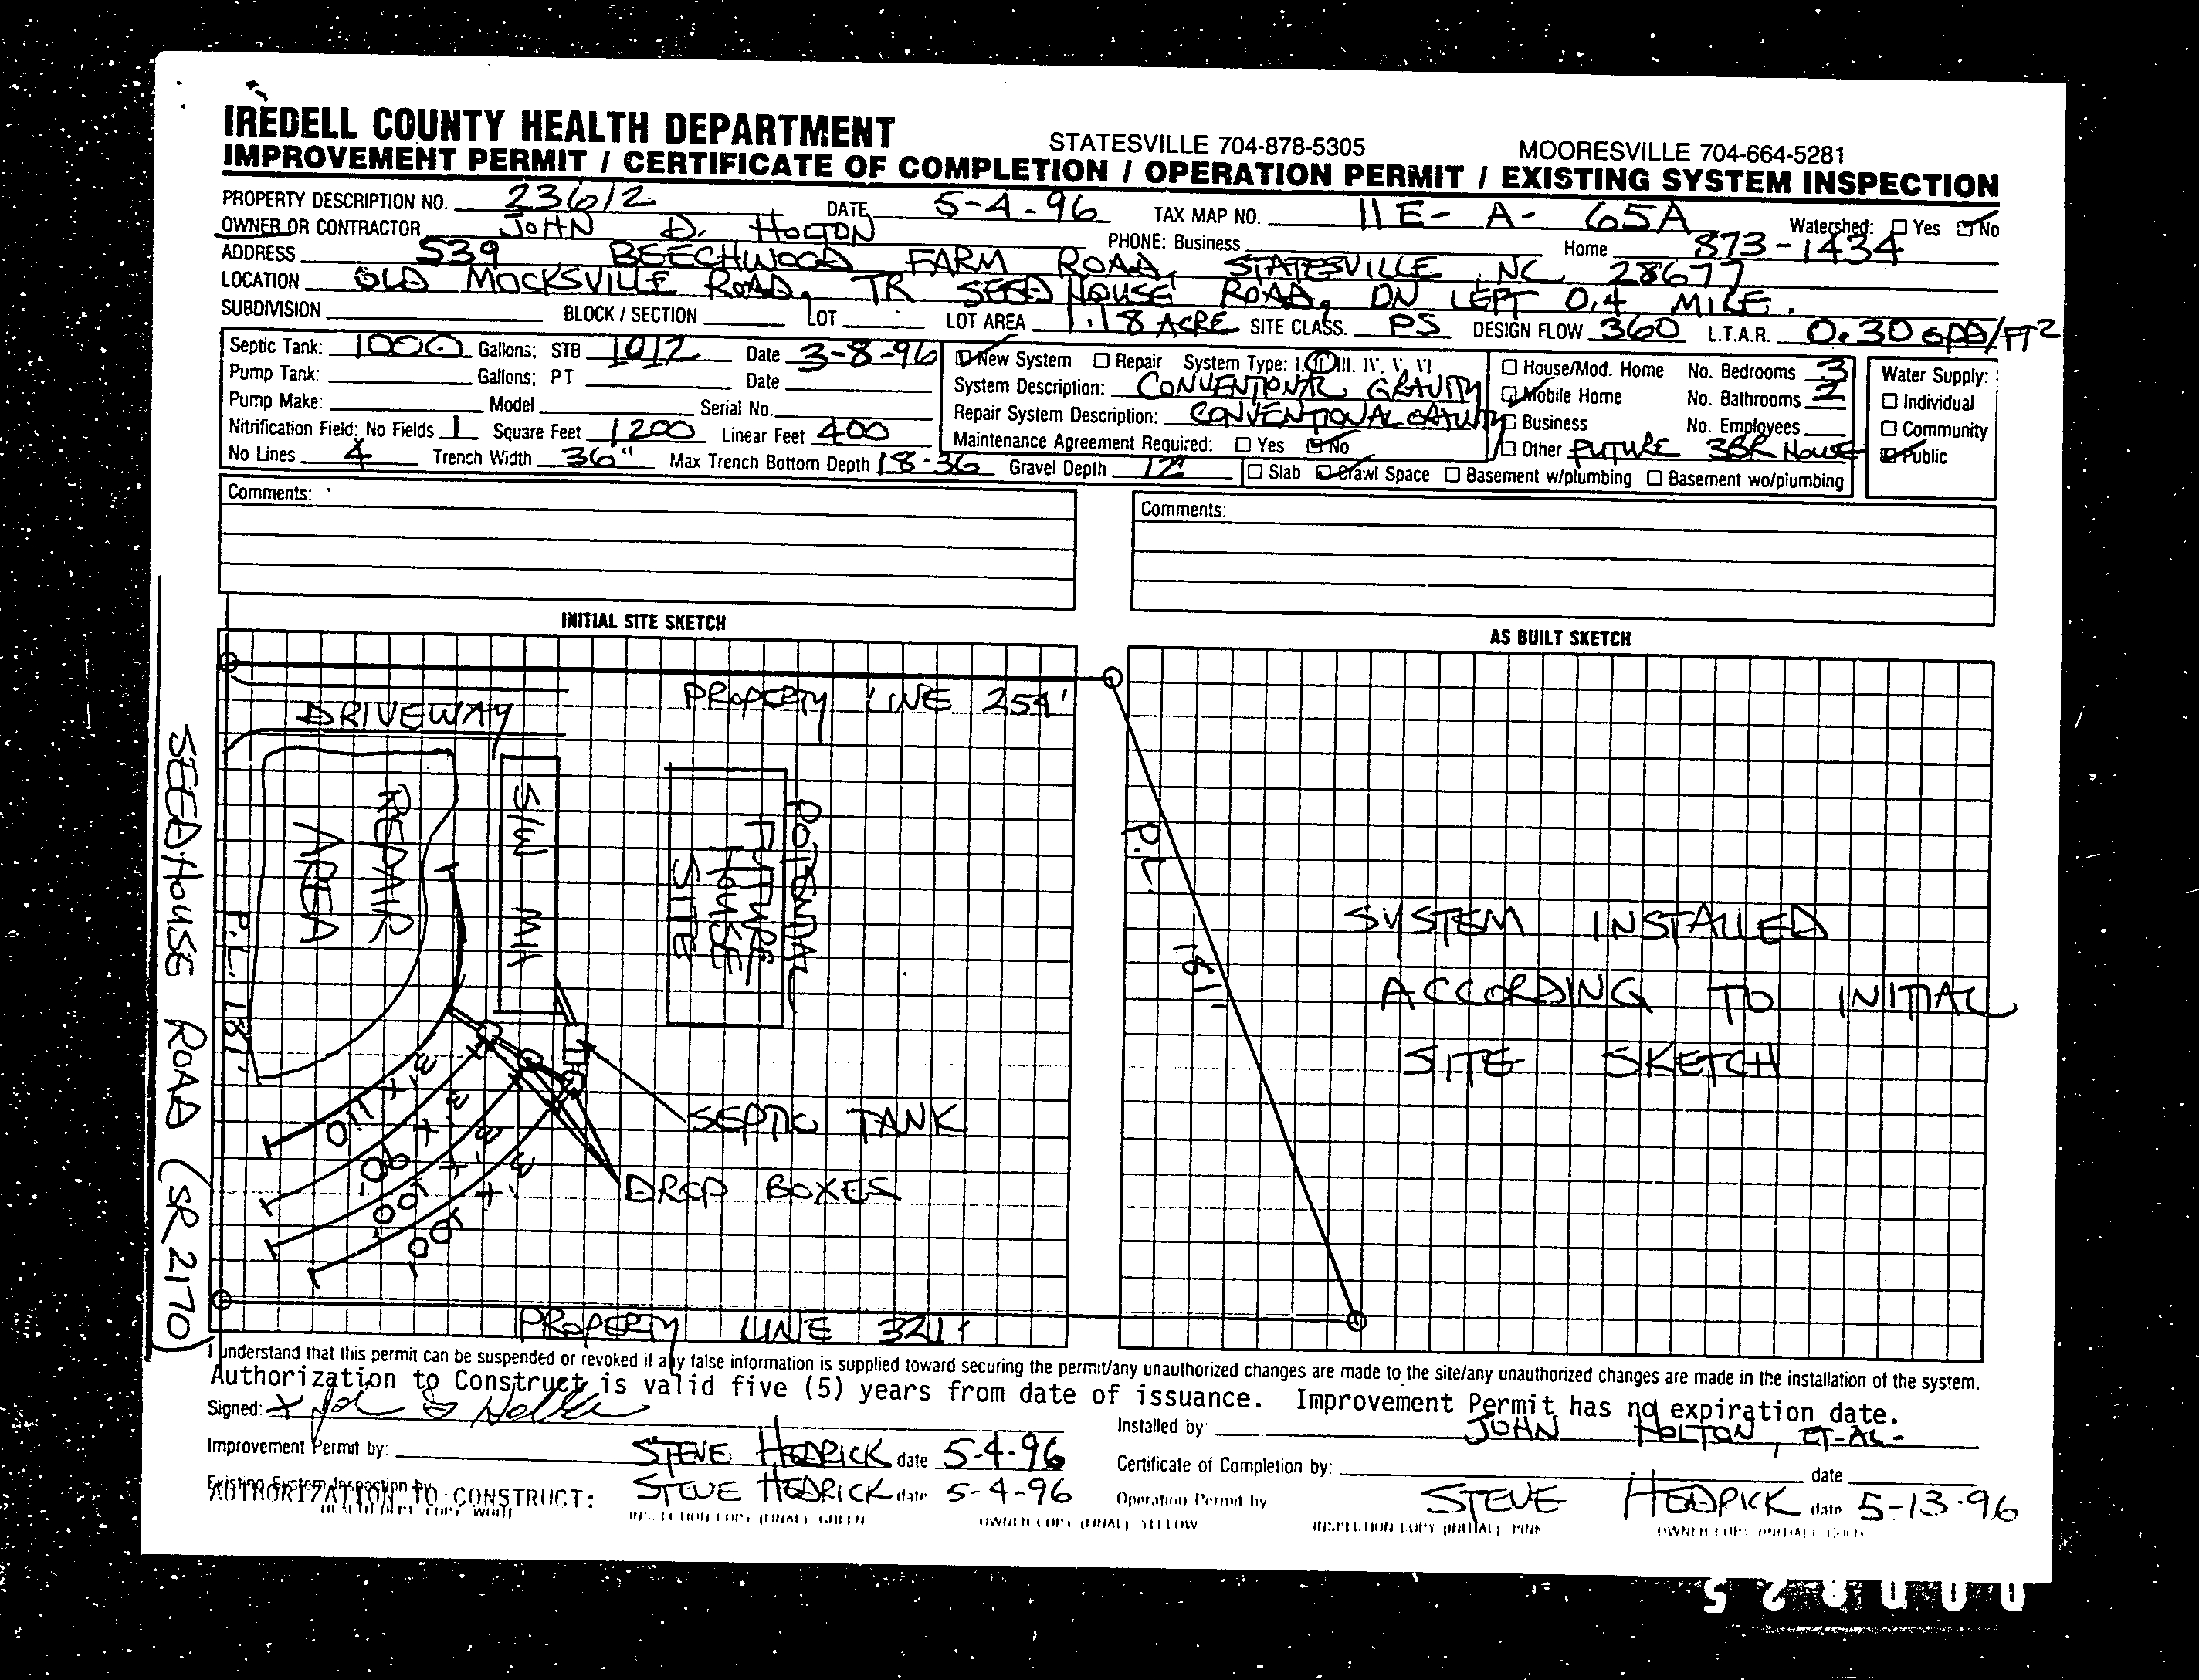 IREDELL COUNTY HEALTH DEPARTMENT STATESVILLE 704-878-5305 MOORESVILLE 704-664-5281
IMPROVEMENT PERMIT / CERTIFICATE OF COMPLETION / OPERATION PERMIT / EXISTING SYSTEM INSPECTION
PROPERTY DESCRIPTION NO. 23612 DATE 5-4-96 TAX MAP NO. 11E-A-65A Watershed: Yes No
OWNER OR CONTRACTOR JOHN D. HOLTON PHONE: Business Home 873-1434
ADDRESS 539 BEECHWOOD FARM ROAD, STATESVILLE, NC 28677
LOCATION OLD MOCKSVILLE ROAD, TR SEED HOUSE ROAD, ON LEFT 0.4 MILE.
SUBDIVISION BLOCK / SECTION LOT LOT AREA 1.18 ACRE SITE CLASS. PS DESIGN FLOW 360 L.T.A.R. 0.30 GPD/FT2
Septic Tank: 1000 Gallons; STB 1012 Date 3-8-96 New System Repair System Type: I. II. III. IV. V. VI House/Mod. Home No. Bedrooms 3 Water Supply:
Pump Tank: Gallons; PT Date System Description: CONVENTIONAL GRAVITY Mobile Home No. Bathrooms 2 Individual
Pump Make: Model Serial No. Repair System Description: CONVENTIONAL GRAVITY Business No. Employees Community
Nitrification Field: No Fields 1 Square Feet 1200 Linear Feet 400 Maintenance Agreement Required: Yes No Other FUTURE 3BR HOUSE Public
No Lines 4 Trench Width 36" Max Trench Bottom Depth 18-36 Gravel Depth 12" Slab Crawl Space Basement w/plumbing Basement wo/plumbing
Comments: Comments:
INITIAL SITE SKETCH AS BUILT SKETCH
PROPERTY LINE 254'
DRIVEWAY
S/W MH
REPAIR AREA
POTENTIAL FUTURE HOUSE SITE
P.L. 187'
P.L.
191'
SEEDHOUSE ROAD (SR 2170)
SYSTEM INSTALLED
ACCORDING TO INITIAL
SITE SKETCH
3'+ 3'+ 3'+ 3'+
110
90'
100'
100'
SEPTIC TANK
DROP BOXES
PROPERTY LINE 321'
I understand that this permit can be suspended or revoked if any false information is supplied toward securing the permit/any unauthorized changes are made to the site/any unauthorized changes are made in the installation of the system.
Authorization to Construct is valid five (5) years from date of issuance. Improvement Permit has no expiration date.
Signed: X Installed by JOHN HOLTON, ET-AL-
Improvement Permit by: STEVE HEDRICK date 5-4-96 Certificate of Completion by: date
Existing System Inspection by
AUTHORIZATION TO CONSTRUCT: STEVE HEDRICK date 5-4-96 Operation Permit by STEVE HEDRICK date 5-13-96
HEALTH DEPT COPY WHITE INSPECTION COPY (FINAL) GREEN OWNER COPY (FINAL) YELLOW INSPECTION COPY (INITIAL) PINK OWNER COPY (INITIAL) GOLD